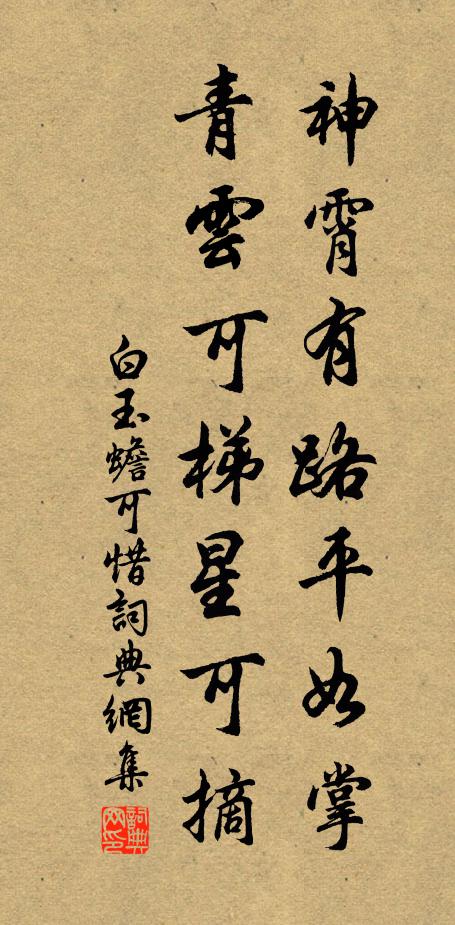 神霄有路平如掌
青雲可梯星可摘
白玉蟾可惜詞典網集
詞典网印